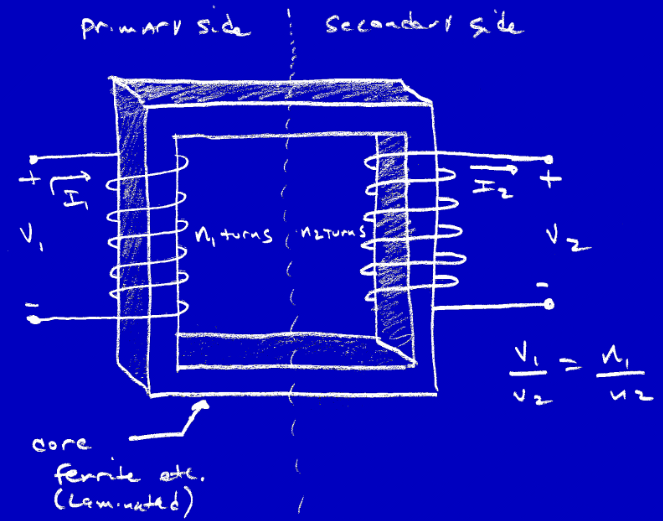 primary side
secondary side
+
I₁
V₁
-
n₁ turns
n2 turns
I₂
+
V₂
-
V₁/V₂ = n₁/n2
core
ferrite etc.
(Laminated)